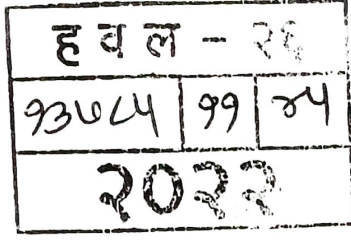 हवल - २६
१३७८५ ११ २५
२०२२